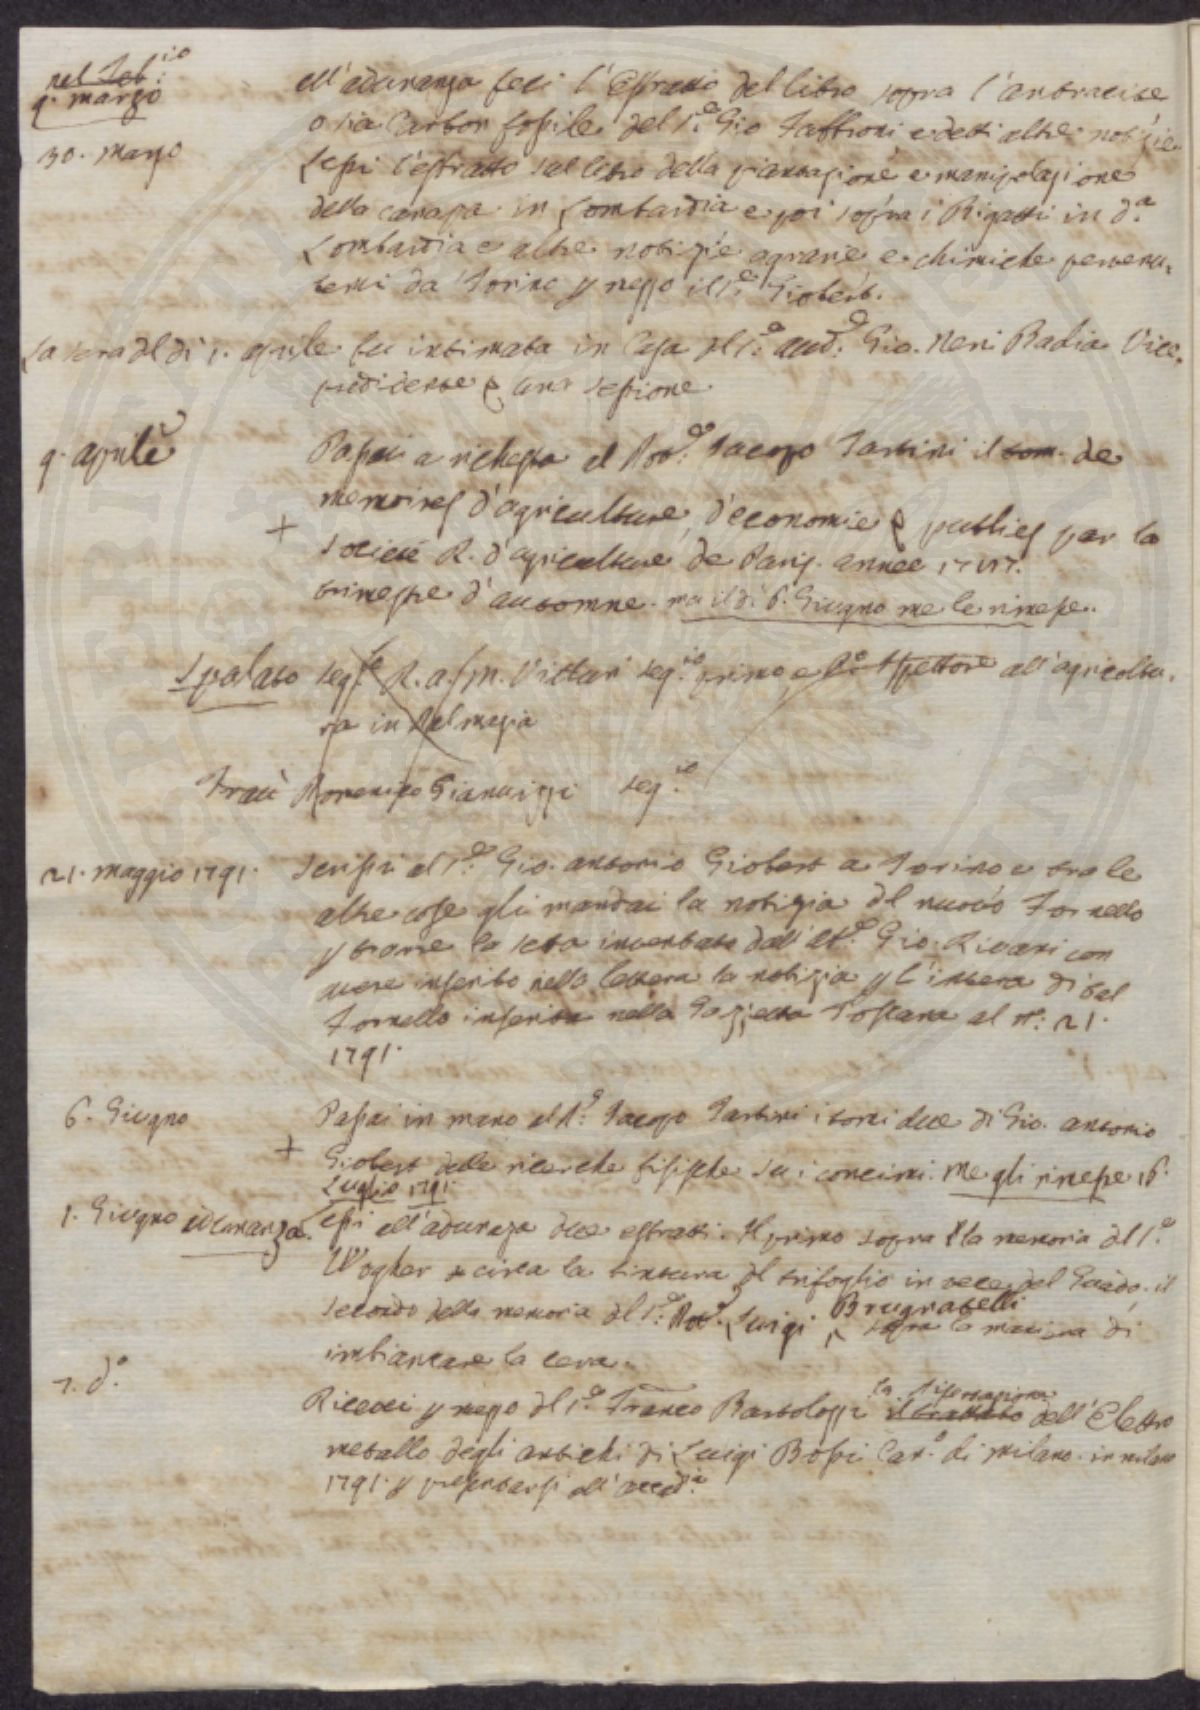 nel Feb:io
9. marzo
all'adunanza feci l'Estratto del libro sopra l'antracite
o sia Carbon fossile del S.e Gio Fabbroni e detti altre notizie
30. Marzo
Lessi l'estratto sul libro della piantazione e manipolazione
della canapa in Lombardia e poi sopra i Rigatti in d.a
Lombardia e altre notizie agrarie e chimiche pervenu=
temi da Torino p mezzo il S.e Giobert.
La sera del dì 1. aprile fu intimata in Casa del S.e Aud.e Gio. Neri Badia Vice=
presidente p una sessione.
9. aprile
Passai a richiesta al Dott.e Jacopo Tartini il tom. de
memoires d'agriculture, d'economie & publies par la
+
Societé R. d'agriculture de Paris. année 1787.
trimestre d'automne. ma il dì 6. Giugno me le rimesse.
Spalato seg.io R. a. m. Vittari seg.io primo e Ispettore all'agricoltu=
ra in Dalmazia
Traù Domenico Gianuizzi seg.io
21. Maggio 1791.
Scrissi al S.e Gio. Antonio Giobert a Torino e tra le
altre cose gli mandai la notizia del nuovo Fornello
p trarre la seta inventato dall' Ab.e Gio. Rivani con
avere inserito nella lettera la notizia p l'intera di tal
Fornello inserita nella Gazzetta Toscana al n.: 21.
1791.
6. Giugno
Passai in mano al D.e Jacopo Tartini i tomi due di Gio. Antonio
+
Giobert delle ricerche fisiche su i concimi. Me gli rimesse 16.
Luglio 1791.
1. Giugno adunanza.
Lessi all'adunanza due estratti. Il primo sopra la memoria del S.e
Vogher circa la tintura del trifoglio in vece del Guado, il
secondo della memoria del S.e Dott.e Luigi Brugnatelli sopra la maniera di
imbiancare la cera.
7. d.o
Ricevei p mezzo del S.e Franco Bartolozzi il trattato la Dissertazione dell'Elettro
metallo degli antichi di Luigi Bossi Can.o di Milano. in Milano
1791. p presentarsi all'accad.ia